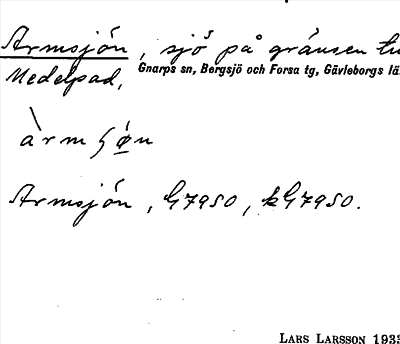 Armsjön, sjö på gränsen
Medelpad,
Gnarps sn, Bergsjö och Forsa tg, Gävleborgs lä
Armsjön, G7950, kG7950.
LARS LARSSON 1933